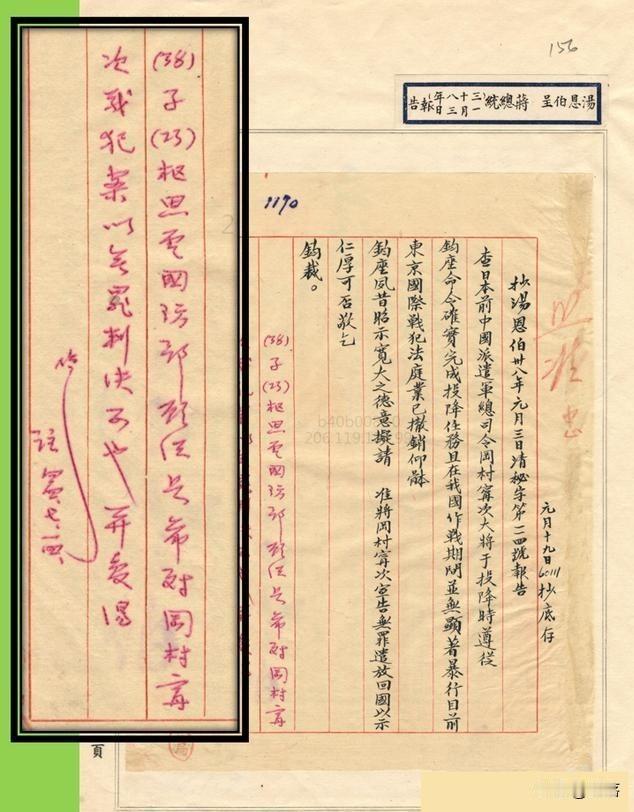 156
湯恩伯呈 蔣總統(三十八年一月三日)報告
1190
照准
元月十九日6011抄底存
抄湯恩伯卅八年元月三日清秘字第二四號報告
查日本前中國派遣軍總司令岡村寧次大將于投降時遵從
鈞座命令確實完成投降任務且在我國作戰期間並無顯著暴行目前
東京國際戰犯法庭業已撤銷仰體
鈞座夙昔昭示寬大之德意擬請 准將岡村寧次宣告無罪遣放回國以示
仁厚可否敬乞
鈞裁。
(38)子(23)樞 電國防部 希對岡村寧
(38)子(23)樞 電國防部 希對岡村寧
次戰犯案以無罪判決可也并復湯
頁